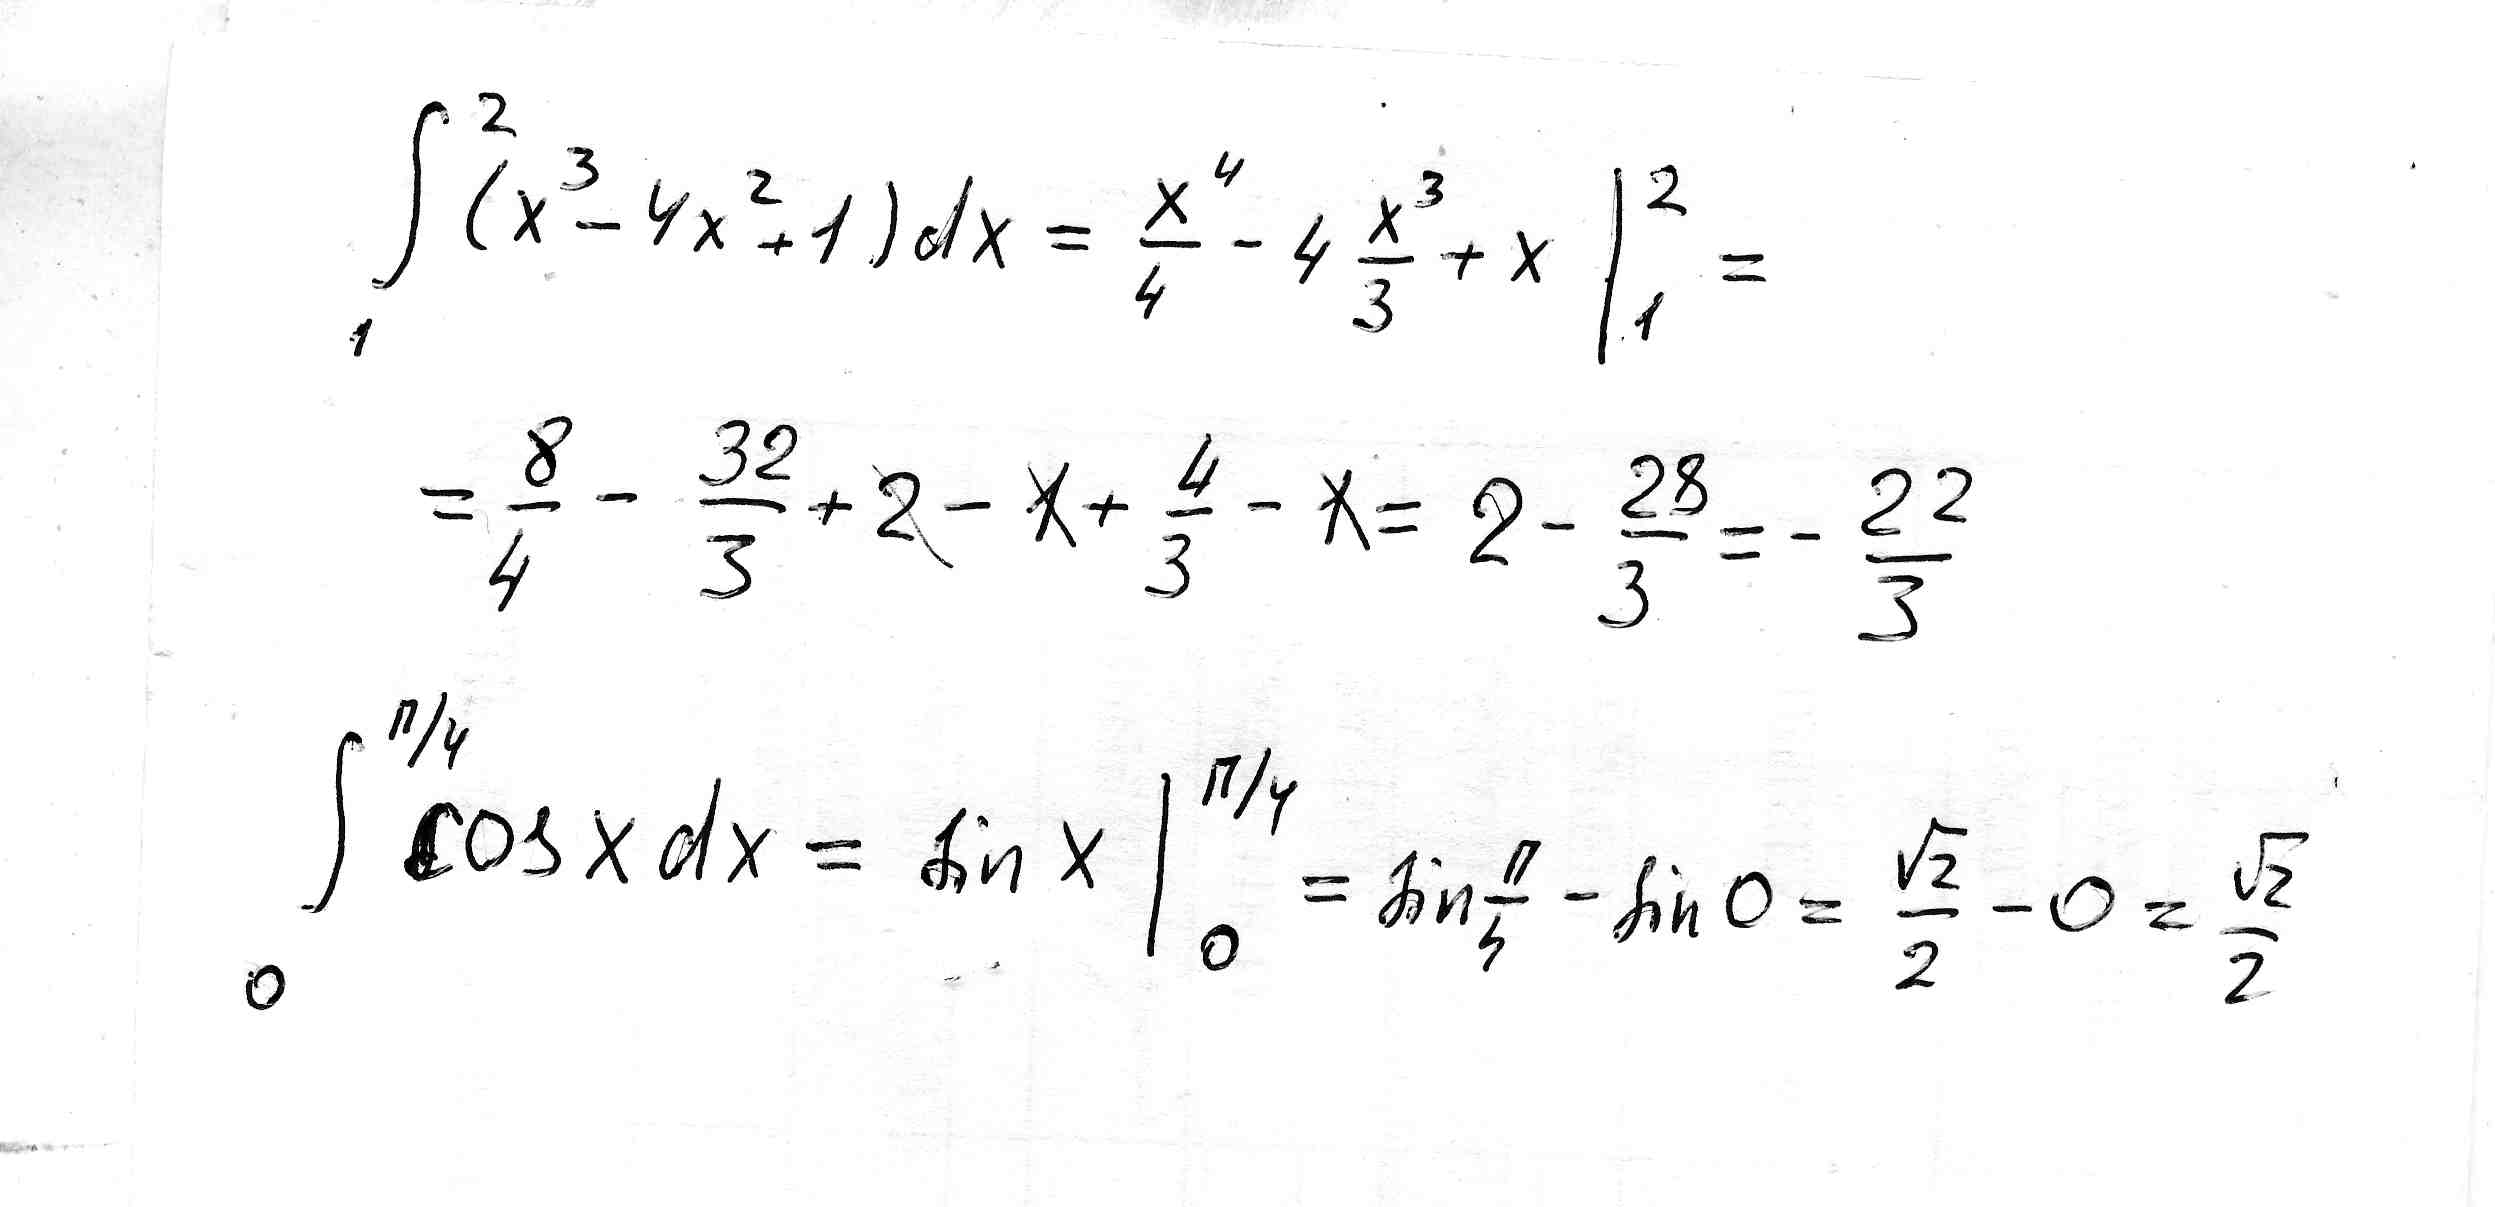 ∫₁² (x³ - 4x² + 1) dx = x⁴/4 - 4 x³/3 + x |₁² =
= 8/4 - 32/3 + 2 - x + 4/3 - x = 2 - 28/3 = - 22/3
∫₀^(π/4) cos x dx = sin x |₀^(π/4) = sin π/4 - sin 0 = √2/2 - 0 = √2/2